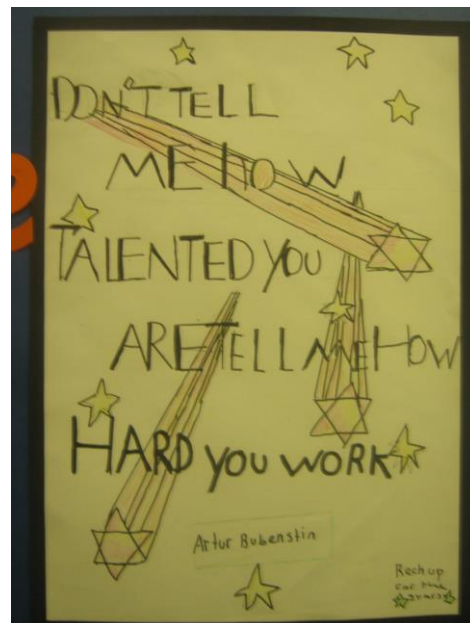 DON'T TELL
ME HOW
TALENTED YOU
ARE TELL ME HOW
HARD YOU WORK
Artur Bubenstin
Rech up
for the